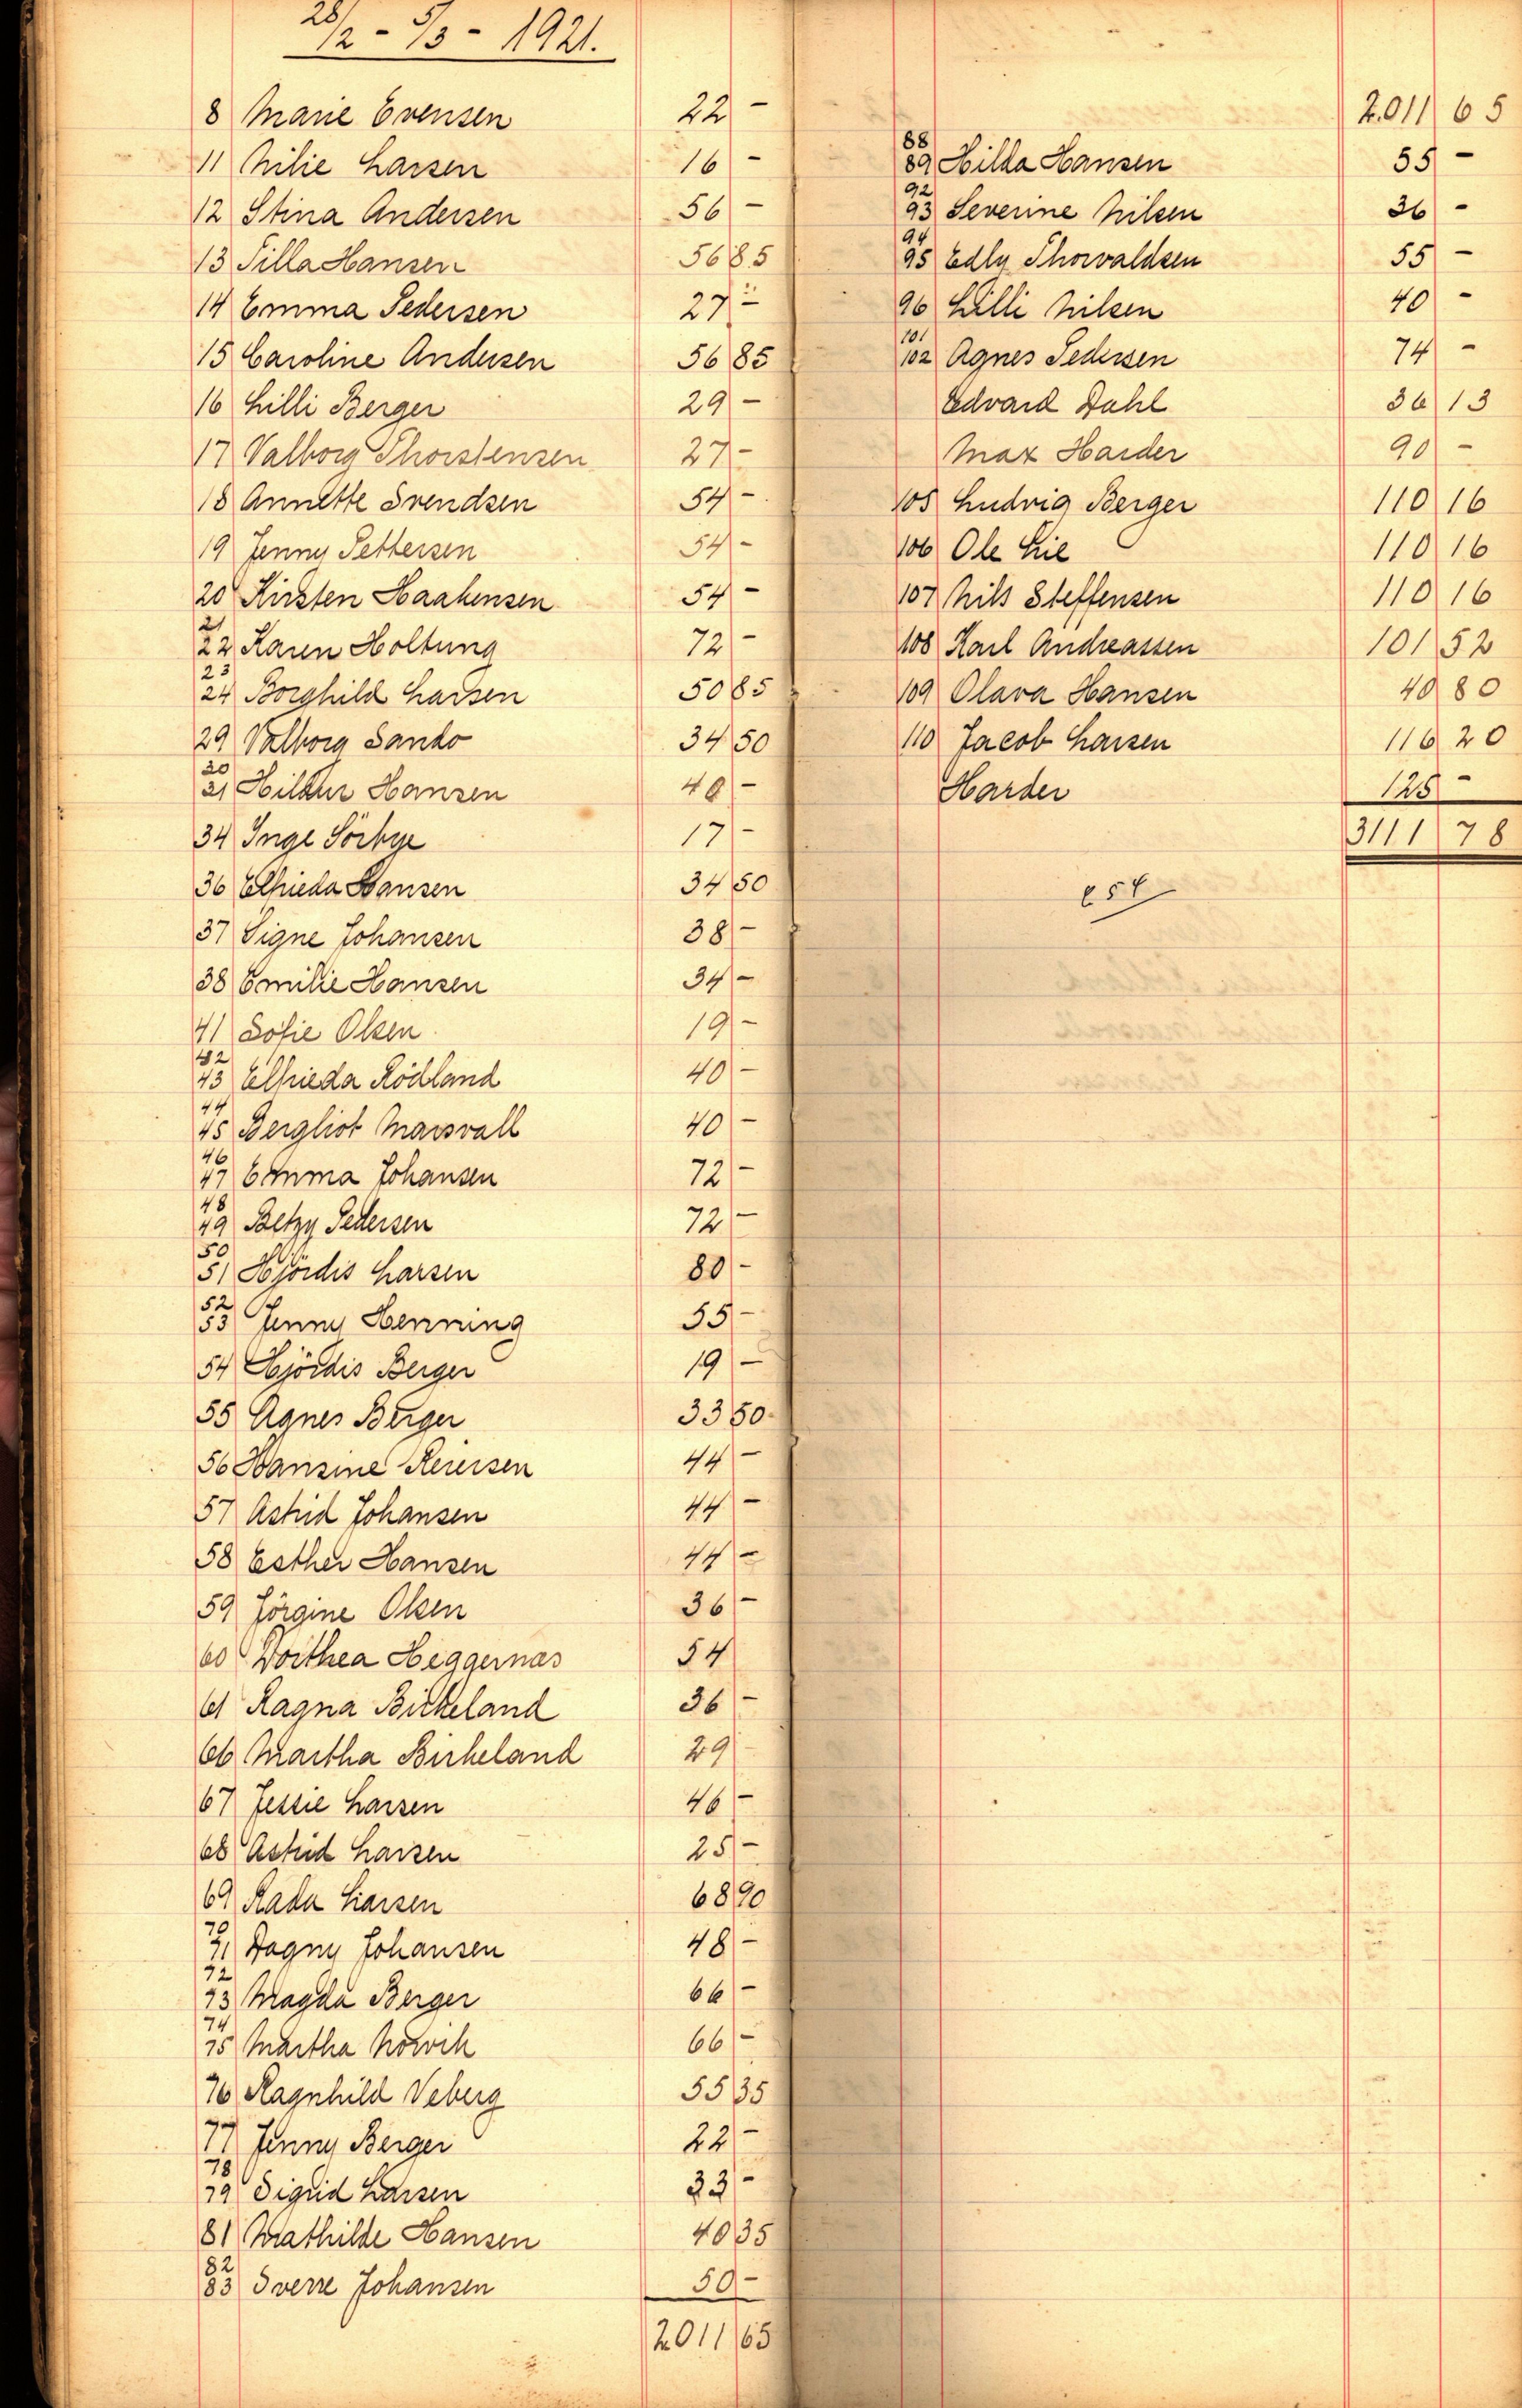 28/2 - 5/3 - 1921.
8 Marie Evensen 22 -
11 Milie Larsen 16 -
12 Stina Andersen 56 -
13 Silla Hansen 56 85
14 Emma Pedersen 27 -
15 Caroline Andersen 56 85
16 Lilli Berger 29 -
17 Valborg Thorstensen 27 -
18 Annette Svendsen 54 -
19 Jenny Pettersen 54 -
20 Kirsten Haakensen 54 -
21
22 Karen Holtung 72 -
23
24 Borghild Larsen 50 85
29 Valborg Sando 34 50
30
31 Hildur Hansen 40 -
34 Inge Sörbye 17 -
36 Elfrieda Hansen 34 50
37 Signe Johansen 38 -
38 Emilie Hansen 34 -
41 Sofie Olsen 19 -
42
43 Elfrieda Rödland 40 -
44
45 Bergliot Marsvall 40 -
46
47 Emma Johansen 72 -
48
49 Betzy Pedersen 72 -
50
51 Hjördis Larsen 80 -
52
53 Jenny Henning 55 -
54 Hjördis Berger 19 -
55 Agnes Berger 33 50
56 Hansine Reiersen 44 -
57 Astrid Johansen 44 -
58 Esther Hansen 44 -
59 Jörgine Olsen 36 -
60 Dorthea Heggernas 54
61 Ragna Birkeland 36 -
66 Martha Birkeland 29 -
67 Jessie Larsen 46 -
68 Astrid Larsen 25 -
69 Rada Larsen 68 90
70
71 Dagny Johansen 48 -
72
73 Magda Berger 66 -
74
75 Martha Norvik 66 -
76 Ragnhild Veberg 55 35
77 Jenny Berger 22 -
78
79 Sigrid Larsen 33 -
81 Mathilde Hansen 40 35
82
83 Sverre Johansen 50 -
2011 65
2.011 65
88
89 Hilda Hansen 55 -
92
93 Severine Nilsen 36 -
94
95 Edly Thorvaldsen 55 -
96 Lilli Nilsen 40 -
101
102 Agnes Pedersen 74 -
Edvard Dahl 36 13
Max Harder 90 -
105 Ludvig Berger 110 16
106 Ole Lie 110 16
107 Nils Steffensen 110 16
108 Karl Andreassen 101 52
109 Olava Hansen 40 80
110 Jacob Larsen 116 20
Harder 125 -
3111 78